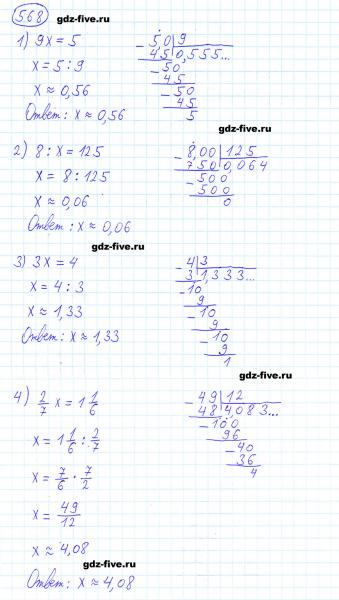 568 gdz-five.ru
1) 9x = 5
x = 5 : 9
x ≈ 0,56
Ответ: x ≈ 0,56
- 50 | 9
45 | 0,555...
- 50
45
- 50
45
5
gdz-five.ru
2) 8 : x = 125
x = 8 : 125
x ≈ 0,06
Ответ: x ≈ 0,06
- 8,00 | 125
750 | 0,064
- 500
500
0
gdz-five.ru
3) 3x = 4
x = 4 : 3
x ≈ 1,33
Ответ: x ≈ 1,33
- 4 | 3
3 | 1,333...
- 10
9
- 10
9
- 10
9
1
gdz-five.ru
gdz-five.ru
4) 2/7 x = 1 1/6
x = 1 1/6 : 2/7
x = 7/6 · 7/2
x = 49/12
x ≈ 4,08
- 49 | 12
48 | 4,083...
- 100
96
- 40
36
4
gdz-five.ru
Ответ: x ≈ 4,08